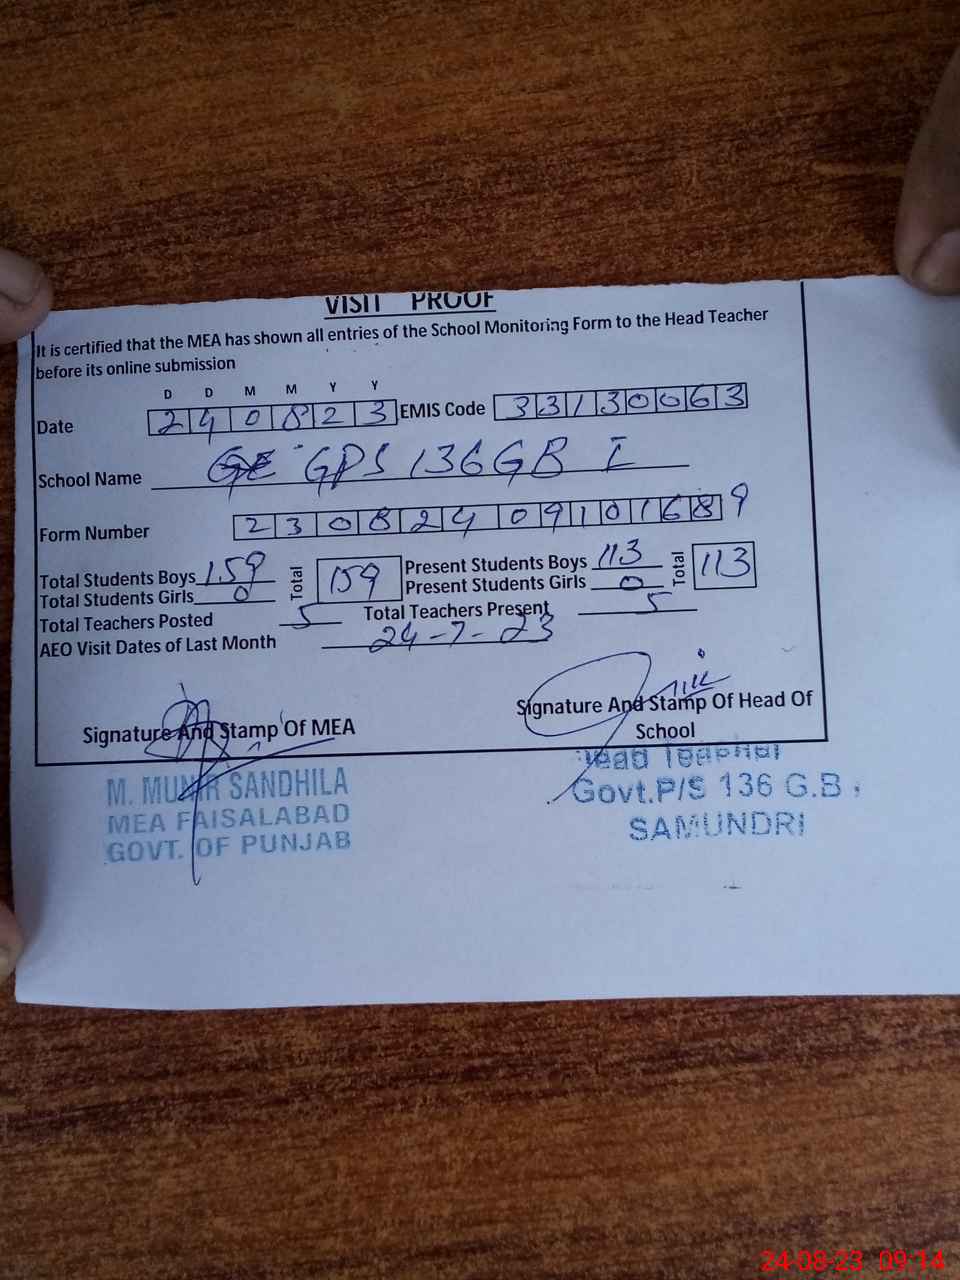 VISIT PROOF
It is certified that the MEA has shown all entries of the School Monitoring Form to the Head Teacher
before its online submission
D D M M Y Y
Date 240823 EMIS Code 33130063
School Name GPS 136 GB I
Form Number 23082409101689
Total Students Boys 159 Total 159 Present Students Boys 113 Total 113
Total Students Girls 0 Present Students Girls 0
Total Teachers Posted 5 Total Teachers Present 5
AEO Visit Dates of Last Month 24-7-23
Signature And Stamp Of MEA Signature And Stamp Of Head Of
School
M. MUNIR SANDHILA
MEA FAISALABAD
GOVT. OF PUNJAB
Head Teacher
Govt.P/S 136 G.B,
SAMUNDRI
24-08-23 09:14